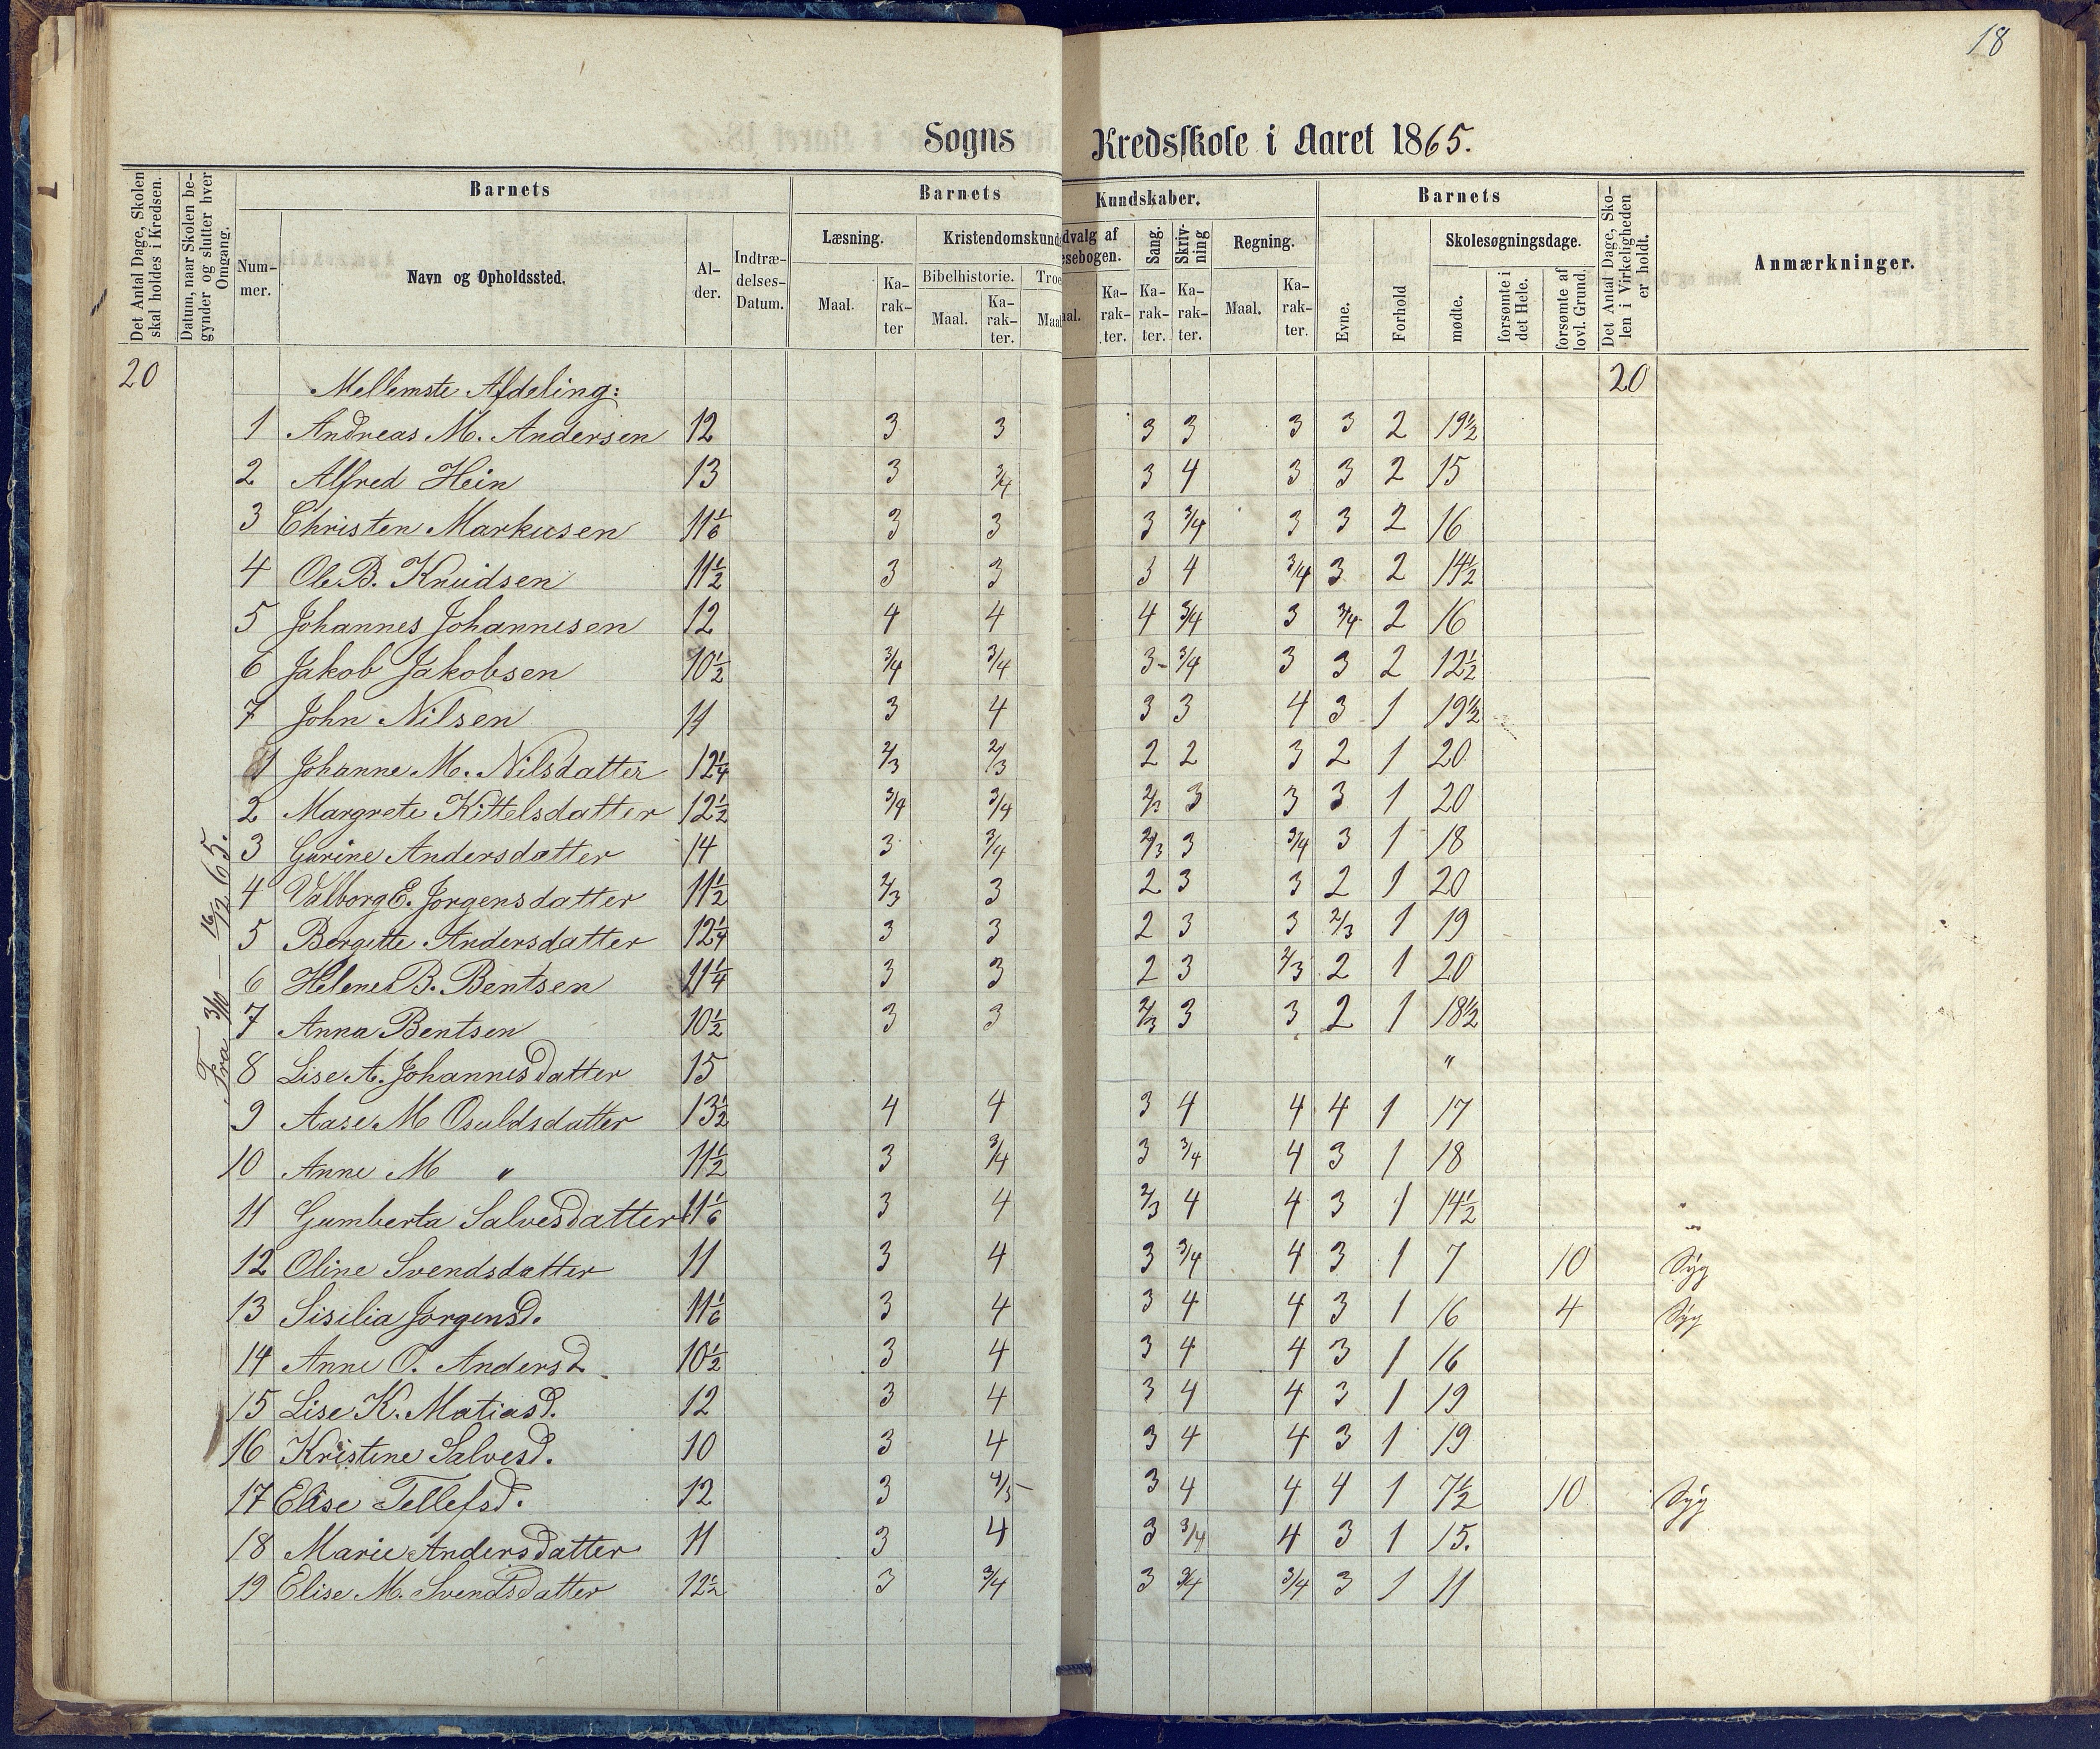 18
Sogns Kredsskole i Aaret 1865.
Det Antal Dage, Skolen skal holdes i Kredsen.
Datum, naar Skolen begynder og slutter hver Omgang.
Barnets
Nummer.
Navn og Opholdssted.
Alder.
Indtrædelses-Datum.
Barnets Kundskaber.
Læsning.
Maal.
Karakter
Kristendomskund
Bibelhistorie.
Maal.
Karakter.
Troe
Maal
dvalg af
sebogen.
al.
Karakter.
Sang.
Karakter.
Skrivning
Karakter.
Regning.
Maal.
Karakter.
Barnets
Evne.
Forhold
Skolesøgningsdage.
mødte.
forsømte i det Hele.
forsømte af lovl. Grund.
Det Antal Dage, Skolen i Virkeligheden er holdt.
Anmærkninger.
20 Mellemste Afdeling: 20
Fra 3/10 — 16/12 65.
1 Andreas M. Andersen 12 3 3 3 3 3 3 2 19½
2 Alfred Hein 13 3 3/4 3 4 3 3 2 15
3 Christen Markusen 11 1/6 3 3 3 3/4 3 3 2 16
4 Ole B. Knudsen 11½ 3 3 3 4 3/4 3 2 14½
5 Johannes Johannesen 12 4 4 4 3/4 3 3/4 2 16
6 Jakob Jakobsen 10½ 3/4 3/4 3- 3/4 3 3 2 12½
7 John Nilsen 11 3 4 3 3 4 3 1 19½
1 Johanne M. Nilsdatter 12¼ 2/3 2/3 2 2 3 2 1 20
2 Margrete Kittelsdatter 12½ 3/4 3/4 2/3 3 3 3 1 20
3 Gurine Andersdatter 14 3 3/4 2/3 3 3/4 3 1 18
4 Valborg E. Jorgensdatter 11½ 2/3 3 2 3 3 2 1 20
5 Bergitte Andersdatter 12¼ 3 3 2 3 3 2/3 1 19
6 Helene B. Bentsen 11¼ 3 3 2 3 2/3 2 1 20
7 Anna Bentsen 10½ 3 3 2/3 3 3 2 1 18½
8 Lise A. Johannesdatter 15 "
9 Aase M Osuldsdatter 13½ 4 4 3 4 4 4 1 17
10 Anne M " 11½ 3 3/4 3 3/4 4 3 1 18
11 Gumberta Salvesdatter 11 1/6 3 4 2/3 4 4 3 1 14½
12 Oline Svendsdatter 11 3 4 3 3/4 4 3 1 7 10 Syg
13 Sisilia Jorgensd. 11 1/6 3 4 3 4 4 3 1 16 4 Syg
14 Anne O. Andersd. 10½ 3 4 3 4 4 3 1 16
15 Lise K. Matiasd. 12 3 4 3 4 4 3 1 19
16 Kristine Salvesd. 10 3 4 3 4 4 3 1 19
17 Elise Tellefsd. 12 3 4/5 3 4 4 4 1 7½ 10 Syg
18 Marie Andersdatter 11 3 4 3 3/4 4 3 1 15.
19 Elise M. Svendsdatter 12½ 3 3/4 3 3/4 3/4 3 1 11